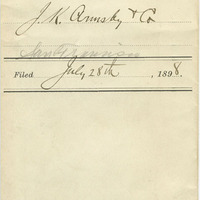 J. K. Armsby & Co
San Francisco
Filed July 28th, 1898.